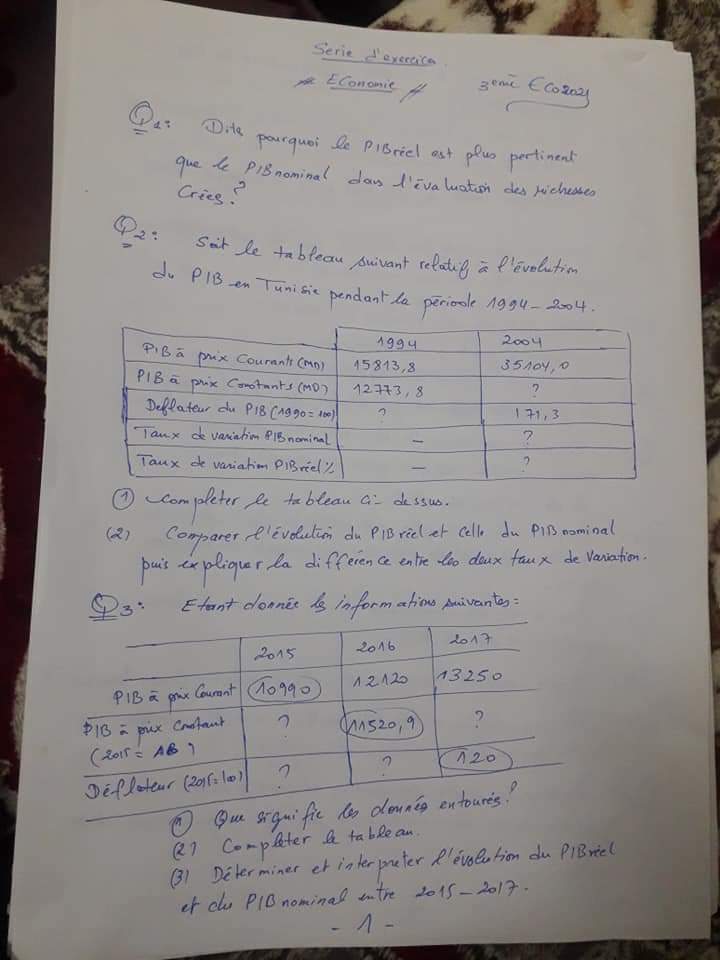 Serie d'exercice
Economie
3eme Eco2021
Q1: Dite pourquoi le PIB réel est plus pertinent
que le PIB nominal dans l'évaluation des richesses
Crées?
Q2: Soit le tableau suivant relatif à l'évolution
du PIB en Tunisie pendant la période 1994-2004.
1994 2004
PIB à prix Courants (MD) 15813,8 35104,0
PIB à prix Constants (MD) 12773,8 ?
Deflateur du PIB (1990=100) ? 171,3
Taux de variation PIB nominal - ?
Taux de variation PIB réel % - ?
(1) Completer le tableau ci-dessus.
(2) Comparer l'évolution du PIB réel et celle du PIB nominal
puis expliquer la différence entre les deux taux de Variation.
Q3: Etant donnés les informations suivantes:
2015 2016 2017
PIB à prix Courant 10990 12120 13250
PIB à prix Constant ? 11520,9 ?
(2015 = AB)
Déflateur (2015=100) ? ? 120
(1) Que signifie les donnés entourés?
(2) Completer le tableau.
(3) Déterminer et interpréter l'évolution du PIB réel
et du PIB nominal entre 2015-2017.
- 1 -